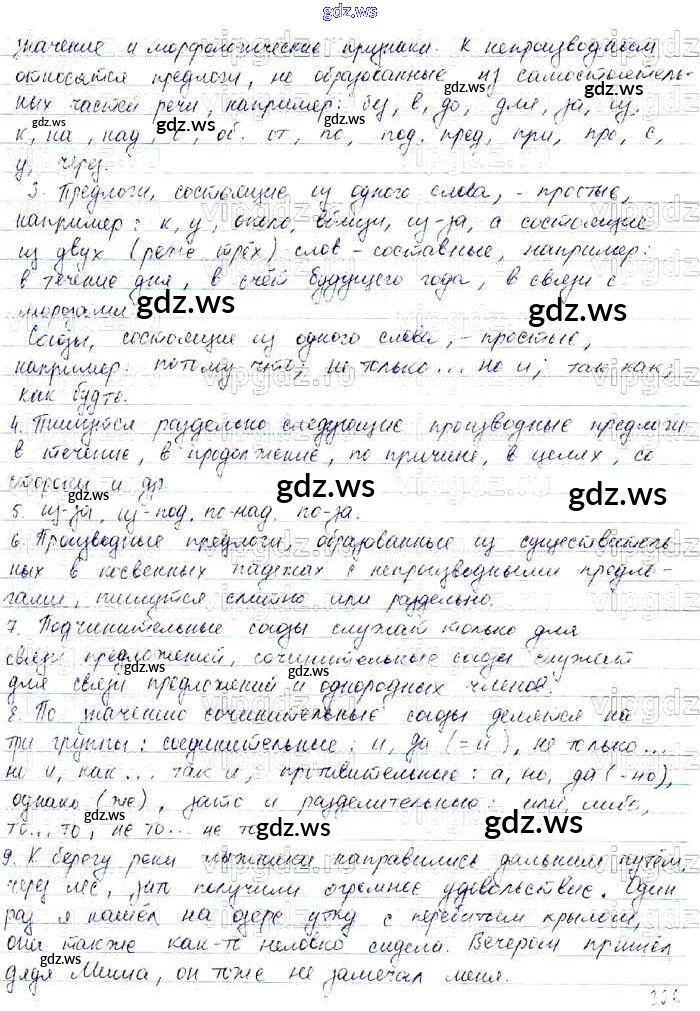 gdz.ws
значение и морфологические признаки. К непроизводным
относятся предлоги, не образованные из самостоятель-
ных частей речи, например: без, в, до, для, за, из,
к, на, над, о, об, от, по, под, пред, при, про, с,
у, через.
3. Предлоги, состоящие из одного слова, - простые,
например: к, у, около, вблизи, из-за, а состоящие
из двух (реже трёх) слов - составные, например:
в течение дня, в счёт будущего года, в связи с
морозами.
Союзы, состоящие из одного слова, - простые,
например: потому что; не только... но и; так как;
как будто.
4. Пишутся раздельно следующие производные предлоги:
в течение, в продолжение, по причине, в целях, со
стороны и др.
5. из-за, из-под, по-над, по-за.
6. Производные предлоги, образованные из существитель-
ных в косвенных падежах с непроизводными предло-
гами, пишутся слитно или раздельно.
7. Подчинительные союзы служат только для
связи предложений, сочинительные союзы служат
для связи предложений и однородных членов.
8. По значению сочинительные союзы делятся на
три группы: соединительные: и, да (=и), не только...
но и, как... так и, противительные: а, но, да (-но),
однако (же), зато и разделительные: или, либо,
то...то, не то... не то.
9. К берегу реки лыжники направились дальним путём,
через лес, зато получили огромное удовольствие. Один
раз я нашёл на озере утку с перебитым крылом,
она также как-то неловко сидела. Вечером пришёл
дядя Миша, он тоже не замечал меня.
gdz.ws